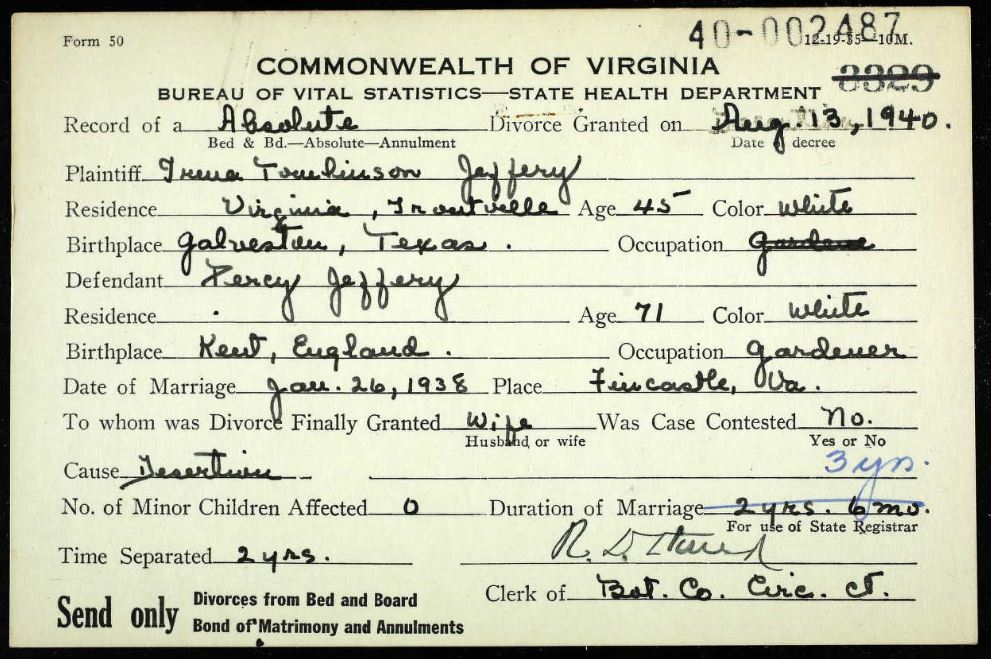 Form 50
40-002487
12-19-35—10M.
COMMONWEALTH OF VIRGINIA
3329
BUREAU OF VITAL STATISTICS—STATE HEALTH DEPARTMENT
Record of a Absolute Divorce Granted on Aug 13, 1940.
Bed & Bd.—Absolute—Annulment Date of decree
Plaintiff Irena Tomlinson Jeffery
Residence Virginia, Troutville Age 45 Color White
Birthplace Galveston, Texas. Occupation Gardener
Defendant Percy Jeffery
Residence . Age 71 Color White
Birthplace Kent, England. Occupation Gardener
Date of Marriage Jan. 26, 1938 Place Fincastle, Va.
To whom was Divorce Finally Granted Wife Was Case Contested No.
Husband or wife Yes or No
3 yrs.
Cause Desertion
No. of Minor Children Affected 0 Duration of Marriage 2 yrs. 6 mo.
For use of State Registrar
Time Separated 2 yrs. R. D.
Clerk of Bot. Co. Circ. Ct.
Send only Divorces from Bed and Board
Bond of Matrimony and Annulments